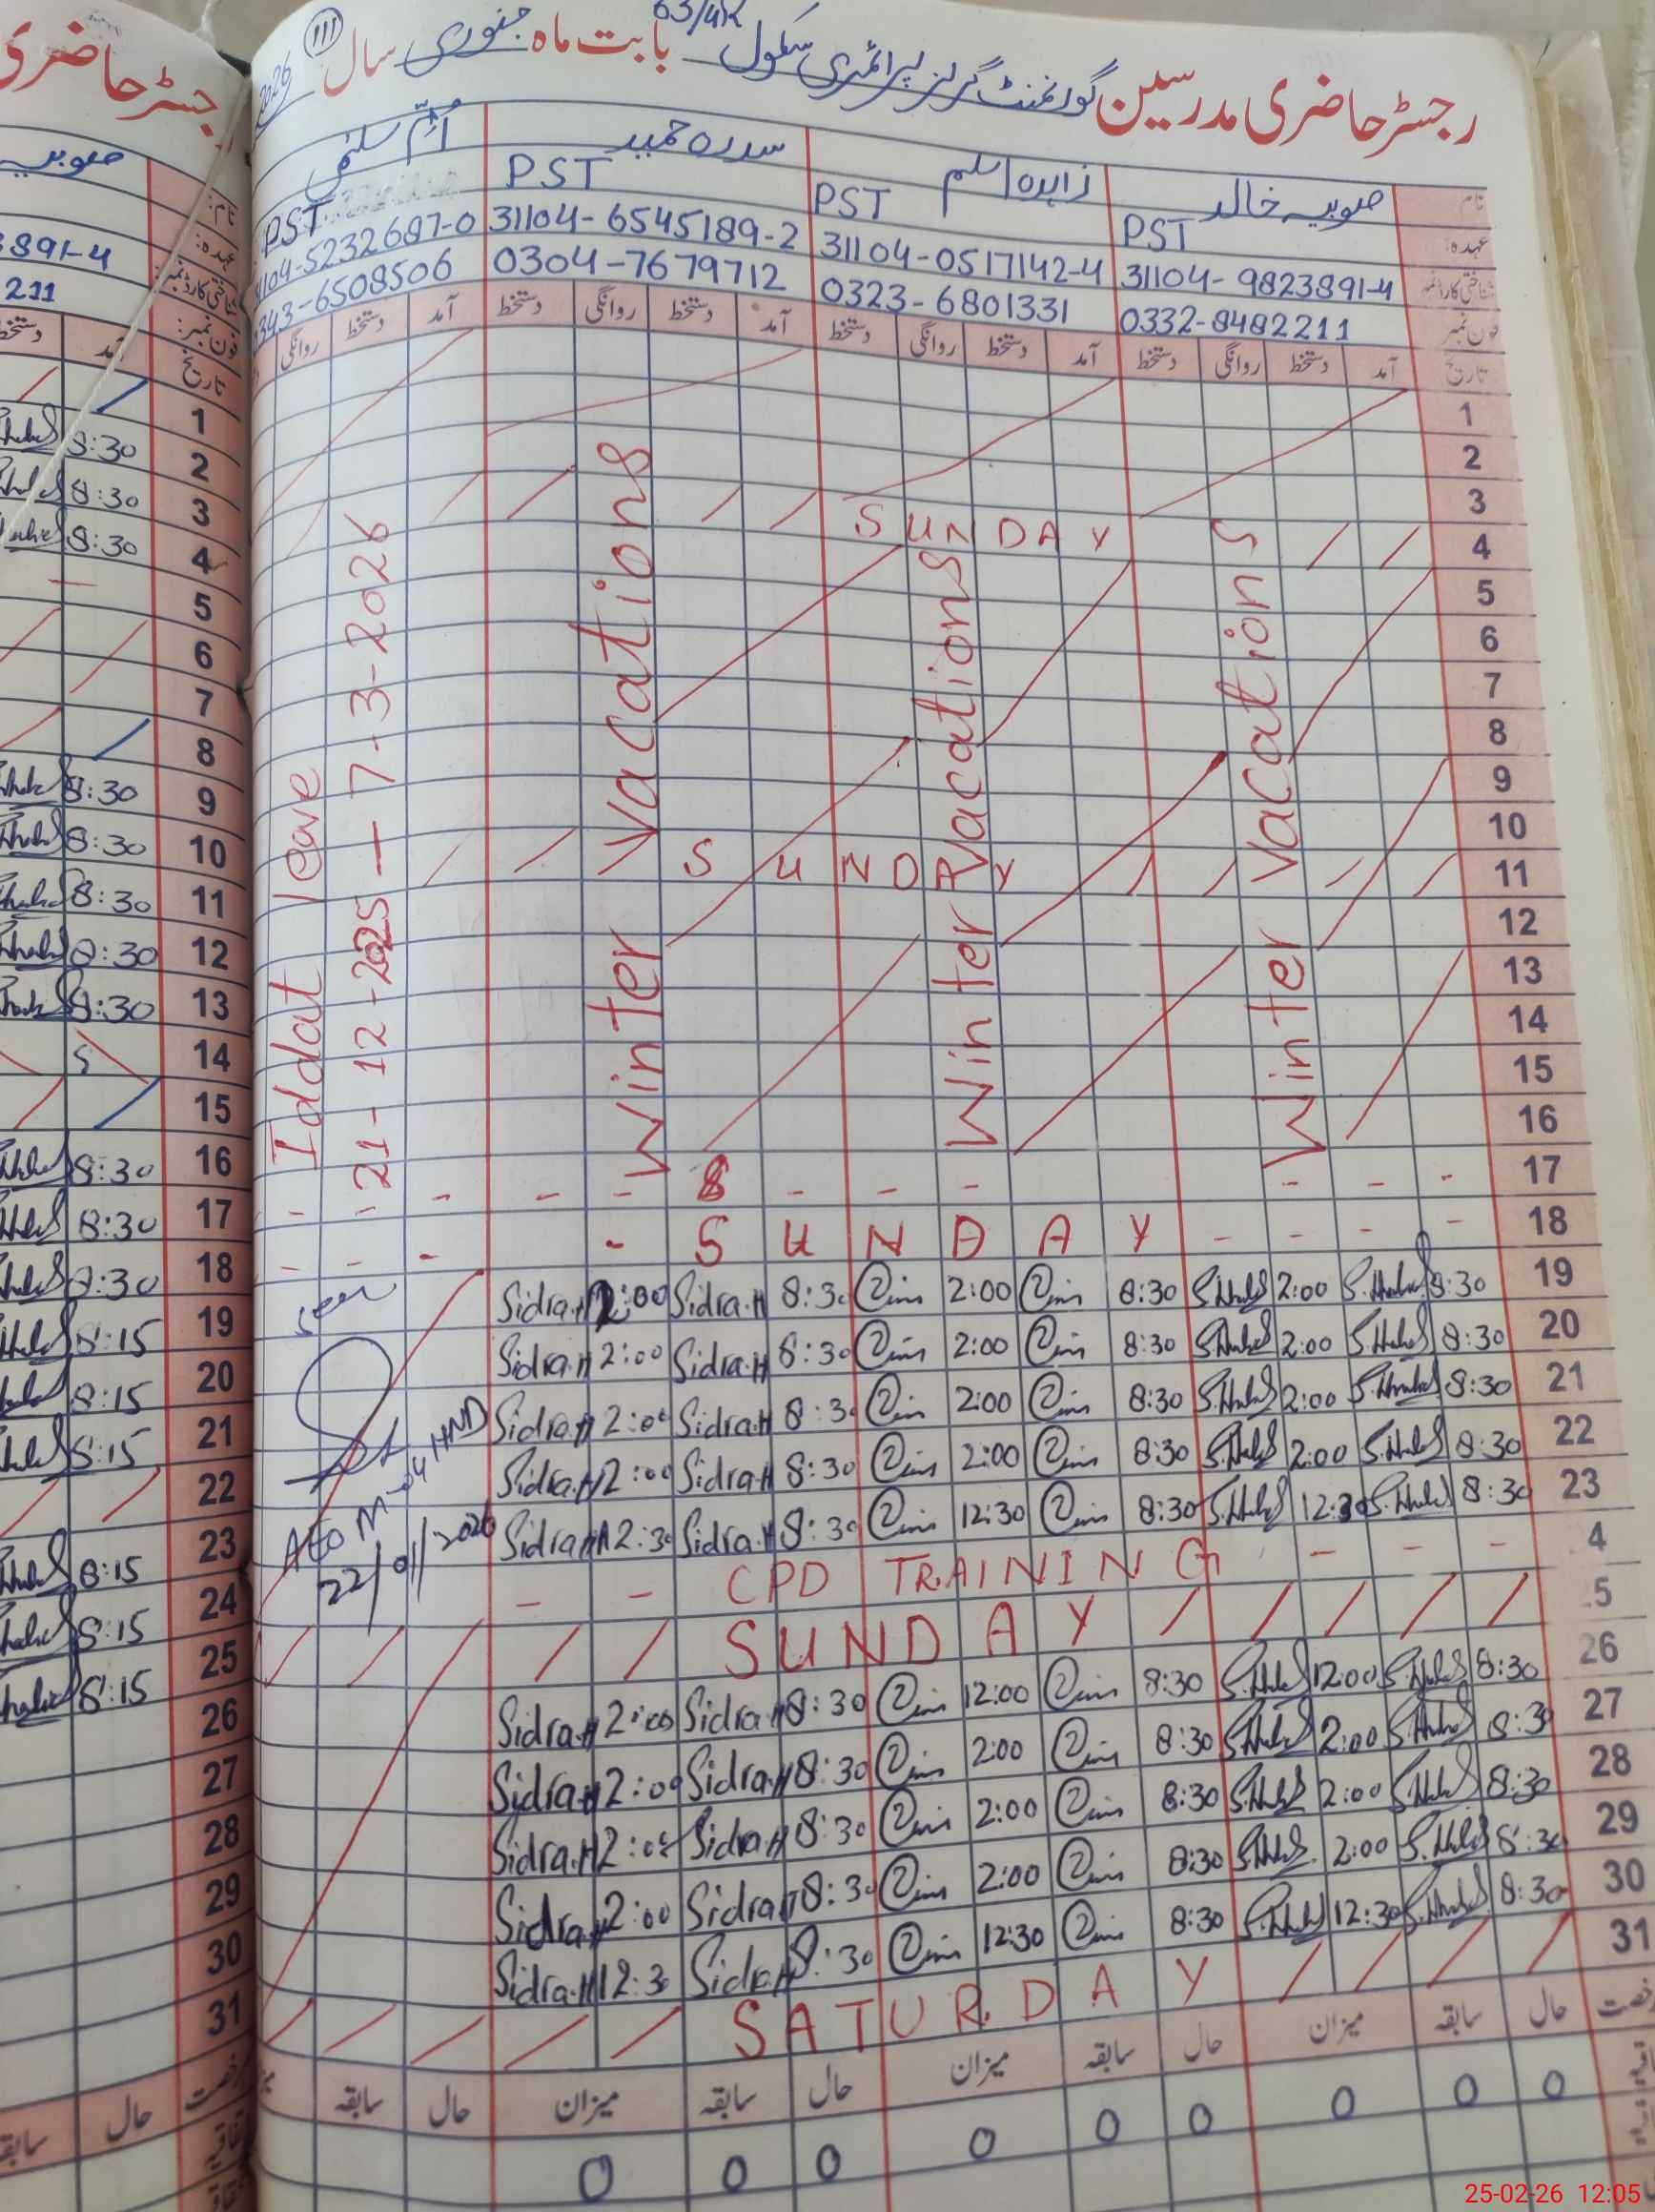 رجسٹر حاضری مدرسین گورنمنٹ گرلز پرائمری سکول 63/4R بابت ماہ جنوری سال 2026
111
نام صوبیہ خالد زاہدہ اسلم سدرہ حمید اُمِّ سلمٰی
عہدہ: PST PST PST PST
شناختی کارڈ نمبر 31104-9823891-4 31104-0517142-4 31104-6545189-2 31104-5232687-0
فون نمبر 0332-8482211 0323-6801331 0304-7679712 0343-6508506
تاریخ آمد دستخط روانگی دستخط آمد دستخط روانگی دستخط آمد دستخط روانگی دستخط آمد دستخط روانگی
1
2
3
4 SUNDAY
5
6
7
8
9
10
11 SUNDAY
12
13
14
15
16
17
18 SUNDAY
Winter Vacations
Winter Vacations
Winter Vacations
Iddat leave
21-12-2025 — 7-3-2026
19 8:30 2:00 8:30 2:00 8:30 Sidra.H 2:00 Sidra.H
20 8:30 2:00 8:30 2:00 8:30 Sidra.H 2:00 Sidra.H
21 8:30 2:00 8:30 2:00 8:30 Sidra.H 2:00 Sidra.H
22 8:30 2:00 8:30 2:00 8:30 Sidra.H 2:00 Sidra.H
23 8:30 12:30 8:30 12:30 8:30 Sidra.H 12:30 Sidra.H
4 CPD TRAINING
5 SUNDAY
26 8:30 12:00 8:30 12:00 8:30 Sidra.H 2:00 Sidra.H
27 8:30 2:00 8:30 2:00 8:30 Sidra.H 2:00 Sidra.H
28 8:30 2:00 8:30 2:00 8:30 Sidra.H 2:00 Sidra.H
29 8:30 2:00 8:30 2:00 8:30 Sidra.H 2:00 Sidra.H
30 8:30 12:30 8:30 12:30 8:30 Sidra.H 12:30 Sidra.H
31 SATURDAY
seen
AEO M-04 HND
22/01/2026
حال سابقہ میزان حال سابقہ میزان حال سابقہ میزان حال سابقہ
0 0 0 0 0 0 0 0 0
رجسٹر حاضری
نام: صوبیہ
عہدہ:
شناختی کارڈ نمبر 3891-4
فون نمبر: 211
تاریخ آمد دستخط
1
2 8:30
3 8:30
4 8:30
5
6
7
8
9 8:30
10 8:30
11 8:30
12 8:30
13 8:30
14 S
15
16 8:30
17 8:30
18 8:30
19 8:15
20 8:15
21 8:15
22
23 8:15
24 8:15
25 8:15
26
27
28
29
30
31
حال سابقہ
25-02-26 12:05